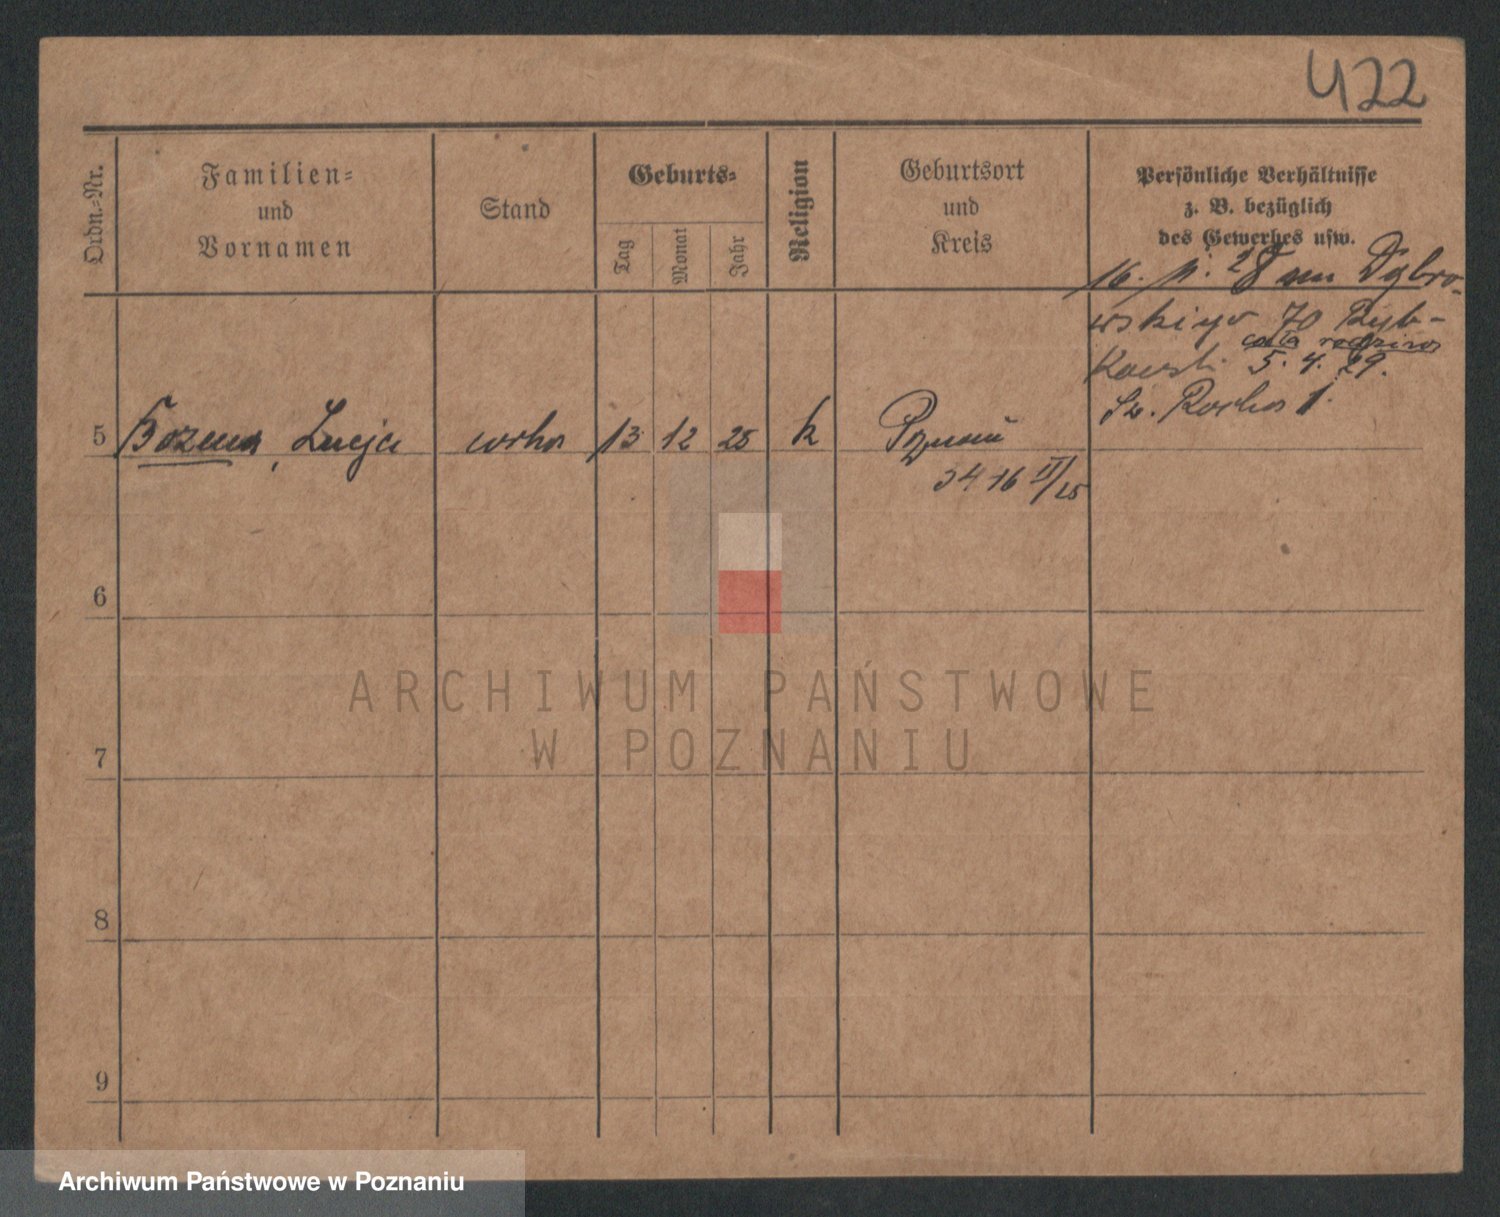 422
Ordn.-Nr.
Familien-
und
Vornamen
Stand
Geburts-
Tag
Monat
Jahr
Religion
Geburtsort
und
Kreis
Persönliche Verhältnisse
z. B. bezüglich
des Gewerbes usw.
16. 28 Dąbro-
wskiego 70 Ryb-
cała rodzina
5. 4. 29.
Św. Rocha 1.
5 Bożena, Łucja córka 13 12 25 k Poznań
34 16 II/25
6
7
8
9
ARCHIWUM PAŃSTWOWE
W POZNANIU
Archiwum Państwowe w Poznaniu